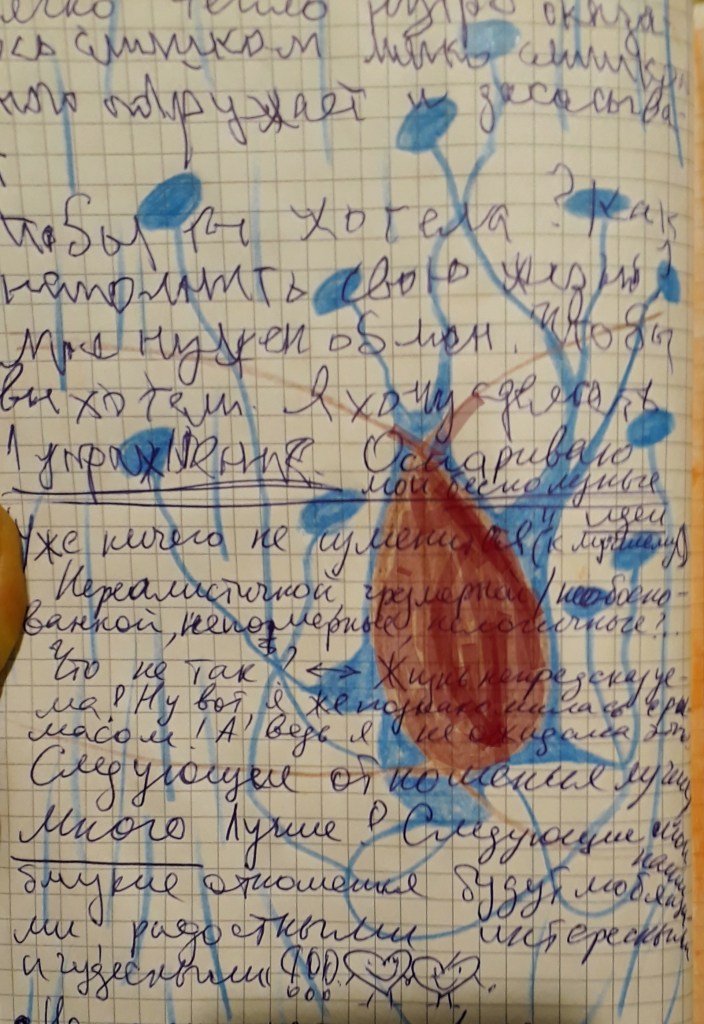 тепло
сь слишком мягко слишком
ного погружает и засасыва
чтобы ты хотела? Как
наполнить свою жизнь?
Мне нужен обмен. Чтобы
вы хотели. Я хочу сделать
1 упражнение. Оспариваю
мои бесполезные
идеи
Уже ничего не изменится (к лучшему)"
Нереалистичной, чрезмерной/необосно-
ванной, непомерные, нелогичные?..
Что не так? ↔ Жизнь непредсказуе-
ма! Ну вот, я же познакомилась с
масом! А ведь я не ожидала это
Следующие отношения лучше
Много Лучше! Следующие мои
близкие отношения будут любящи-
ми, радостными интересными
и чудесными!